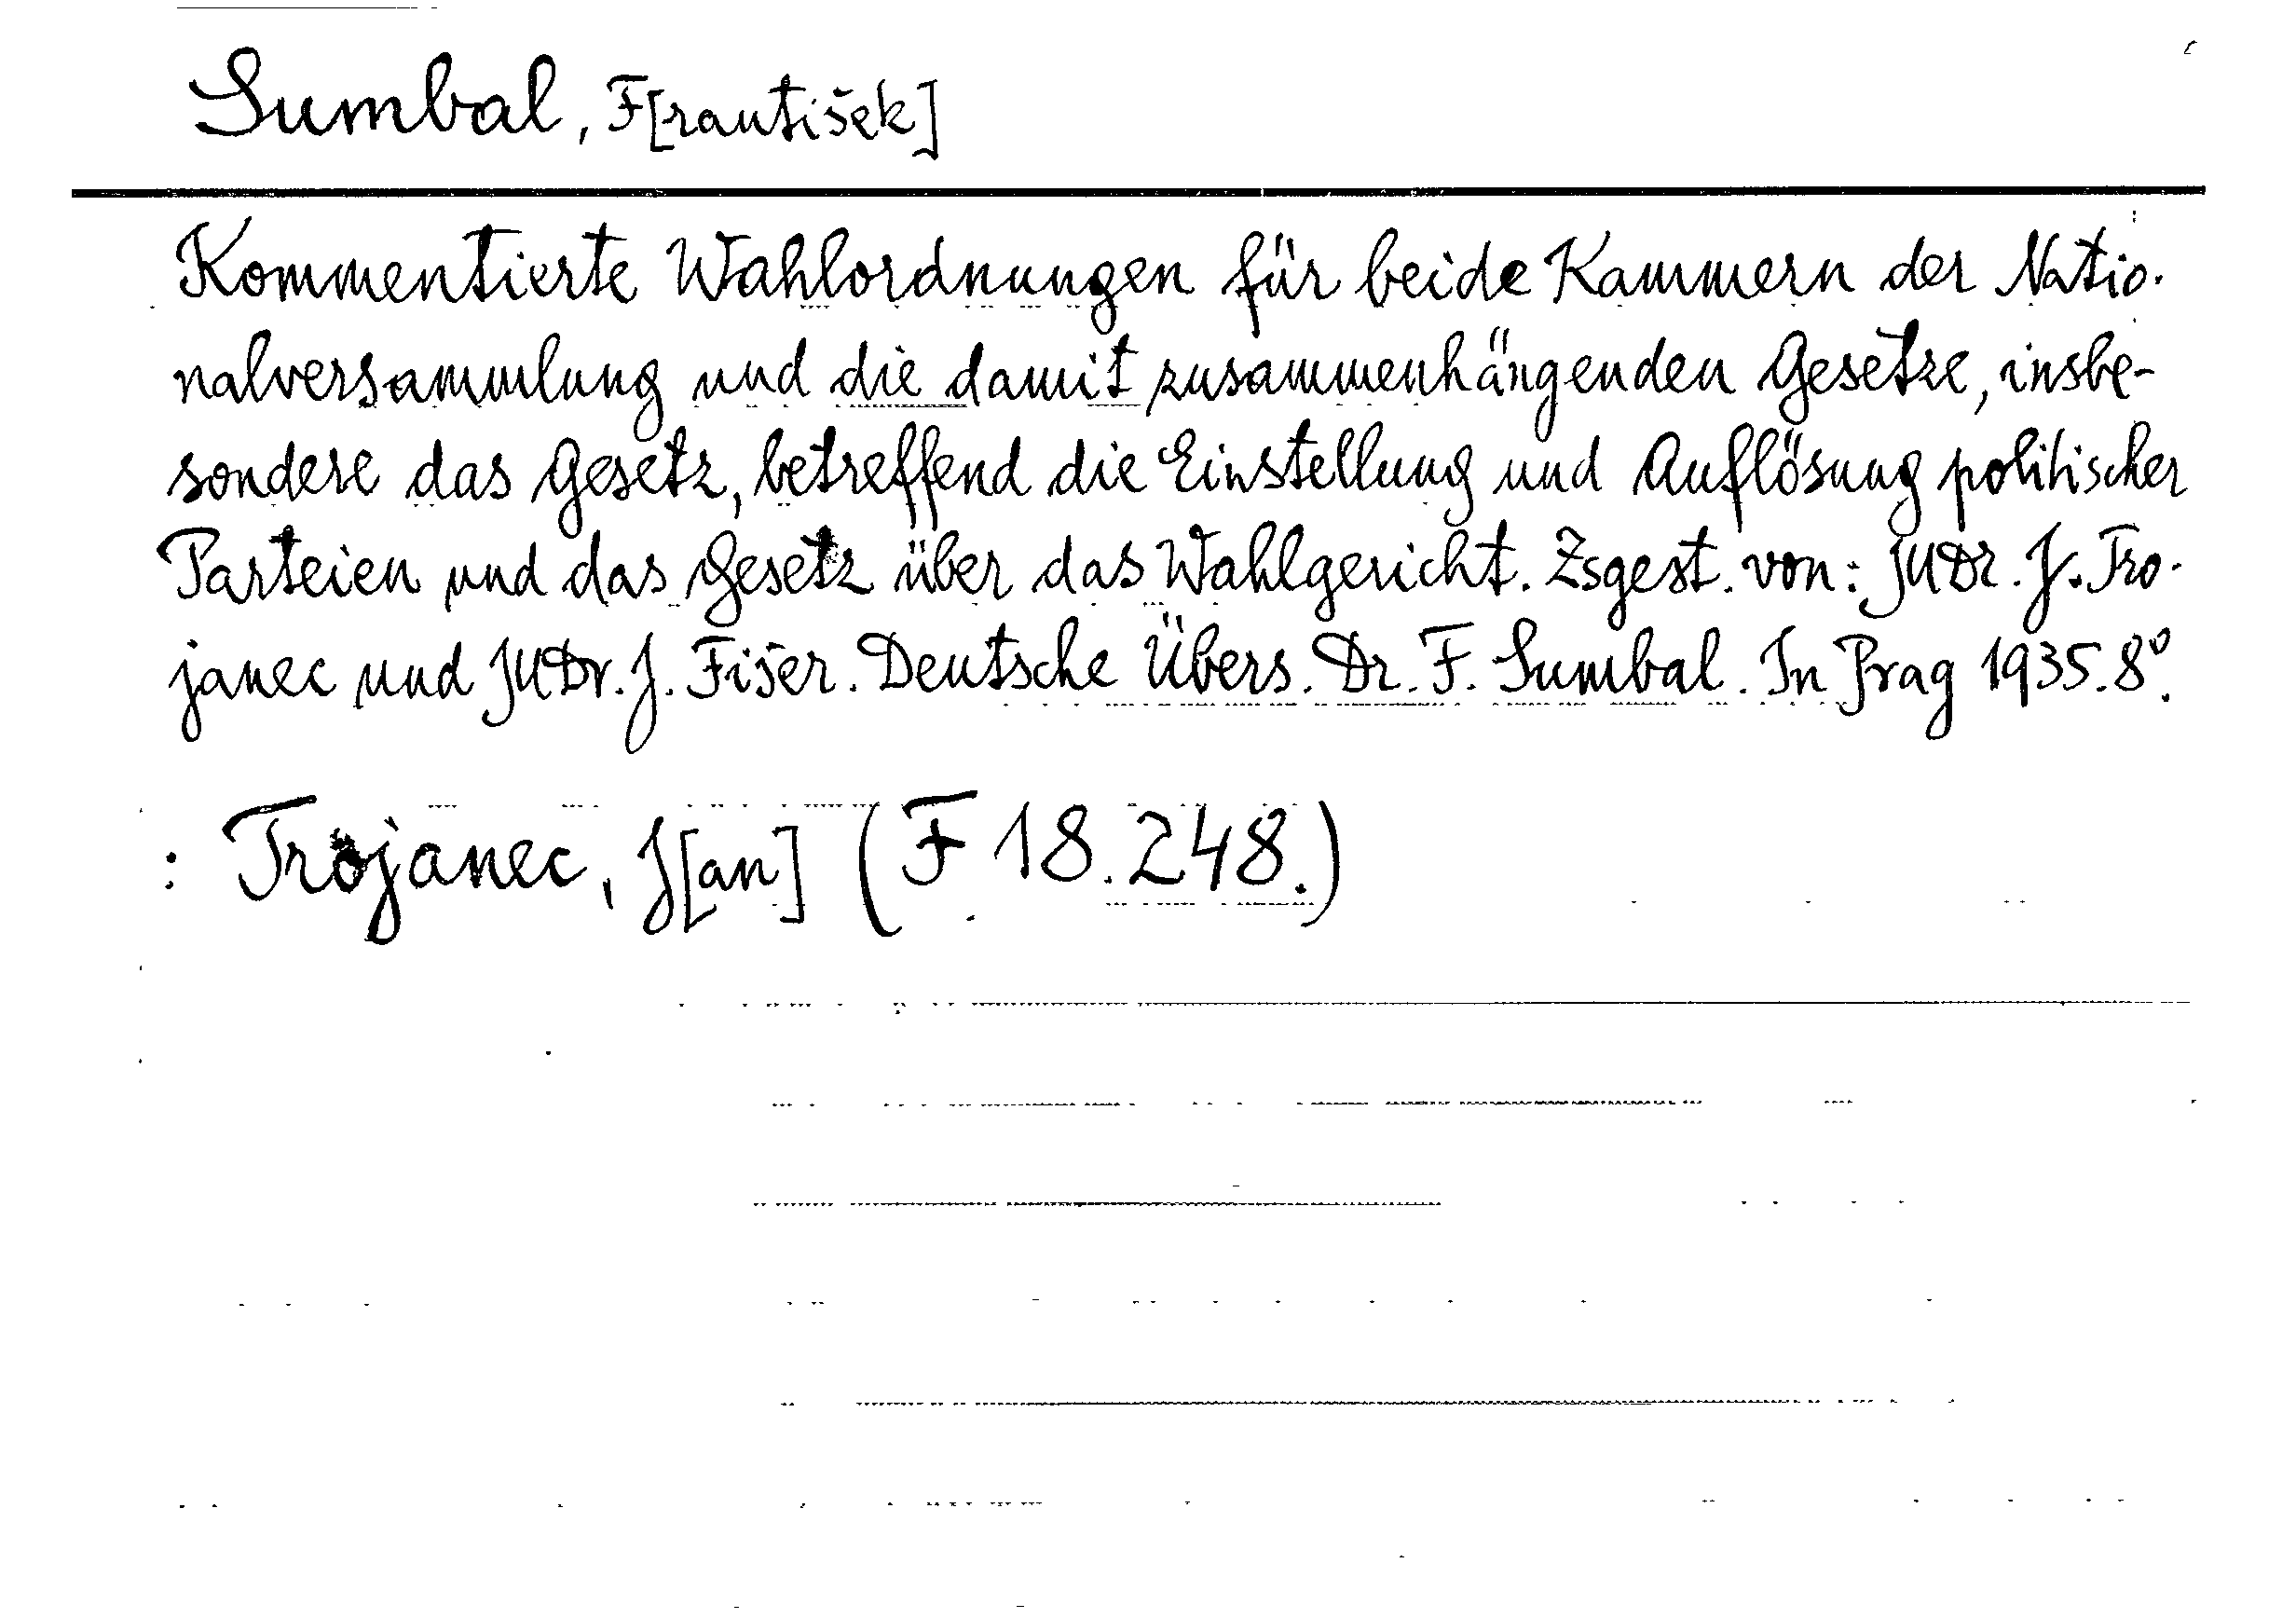 Sumbal, F[rantišek]
Kommentierte Wahlordnungen für beide Kammern der Natio-
nalversammlung und die damit zusammenhängenden Gesetze, insbe-
sondere das Gesetz, betreffend die Einstellung und Auflösung politischer
Parteien und das Gesetz über das Wahlgericht. Zsgest. von: JUDr. J. Tro-
janec und JUDr. J. Fišer. Deutsche Übers. Dr. F. Sumbal. In Prag 1935. 8°.
: Trojanec, J[an] (F 18.248.)